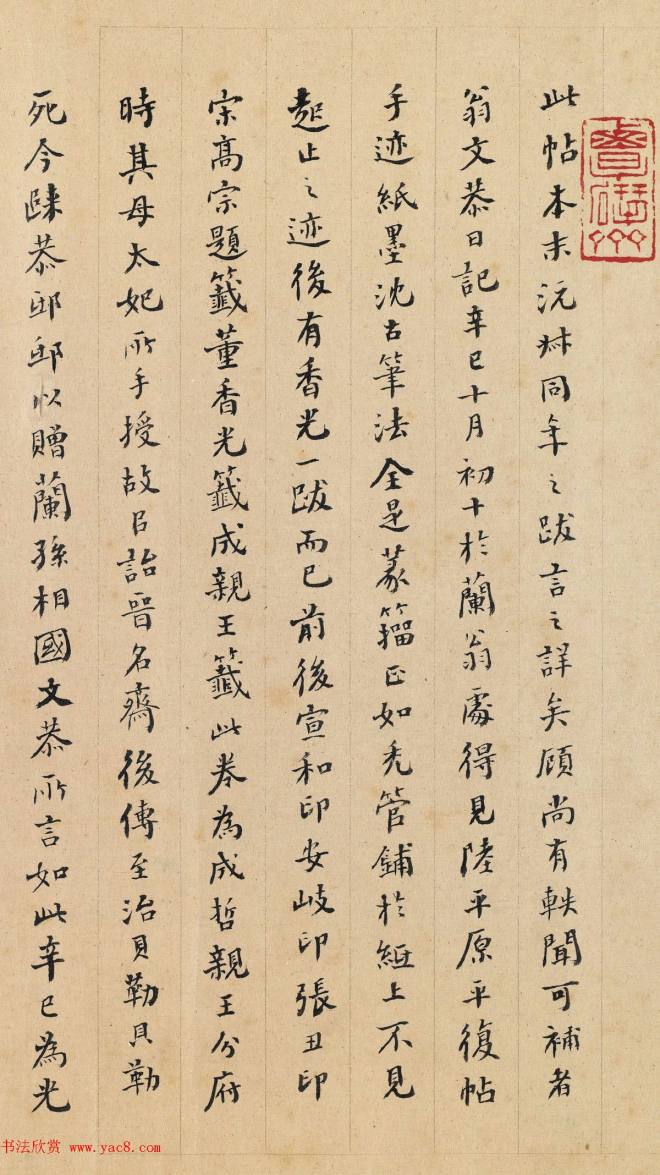 此帖本末沅尗同年之跋言之詳矣顧尚有軼聞可補者
翁文恭日記辛巳十月初十於蘭翁處得見陸平原平復帖
手迹紙墨沈古筆法全是篆籀正如禿管鋪於紙上不見
起止之迹後有香光一跋而已前後宣和印安岐印張丑印
宗高宗題籤董香光籤成親王籤此卷為成哲親王分府
時其母太妃所手授故以詒晉名齋後傳至治貝勒貝勒
死今歸恭邸邸以贈蘭孫相國文恭所言如此辛巳為光
书法欣赏 www.yac8.com